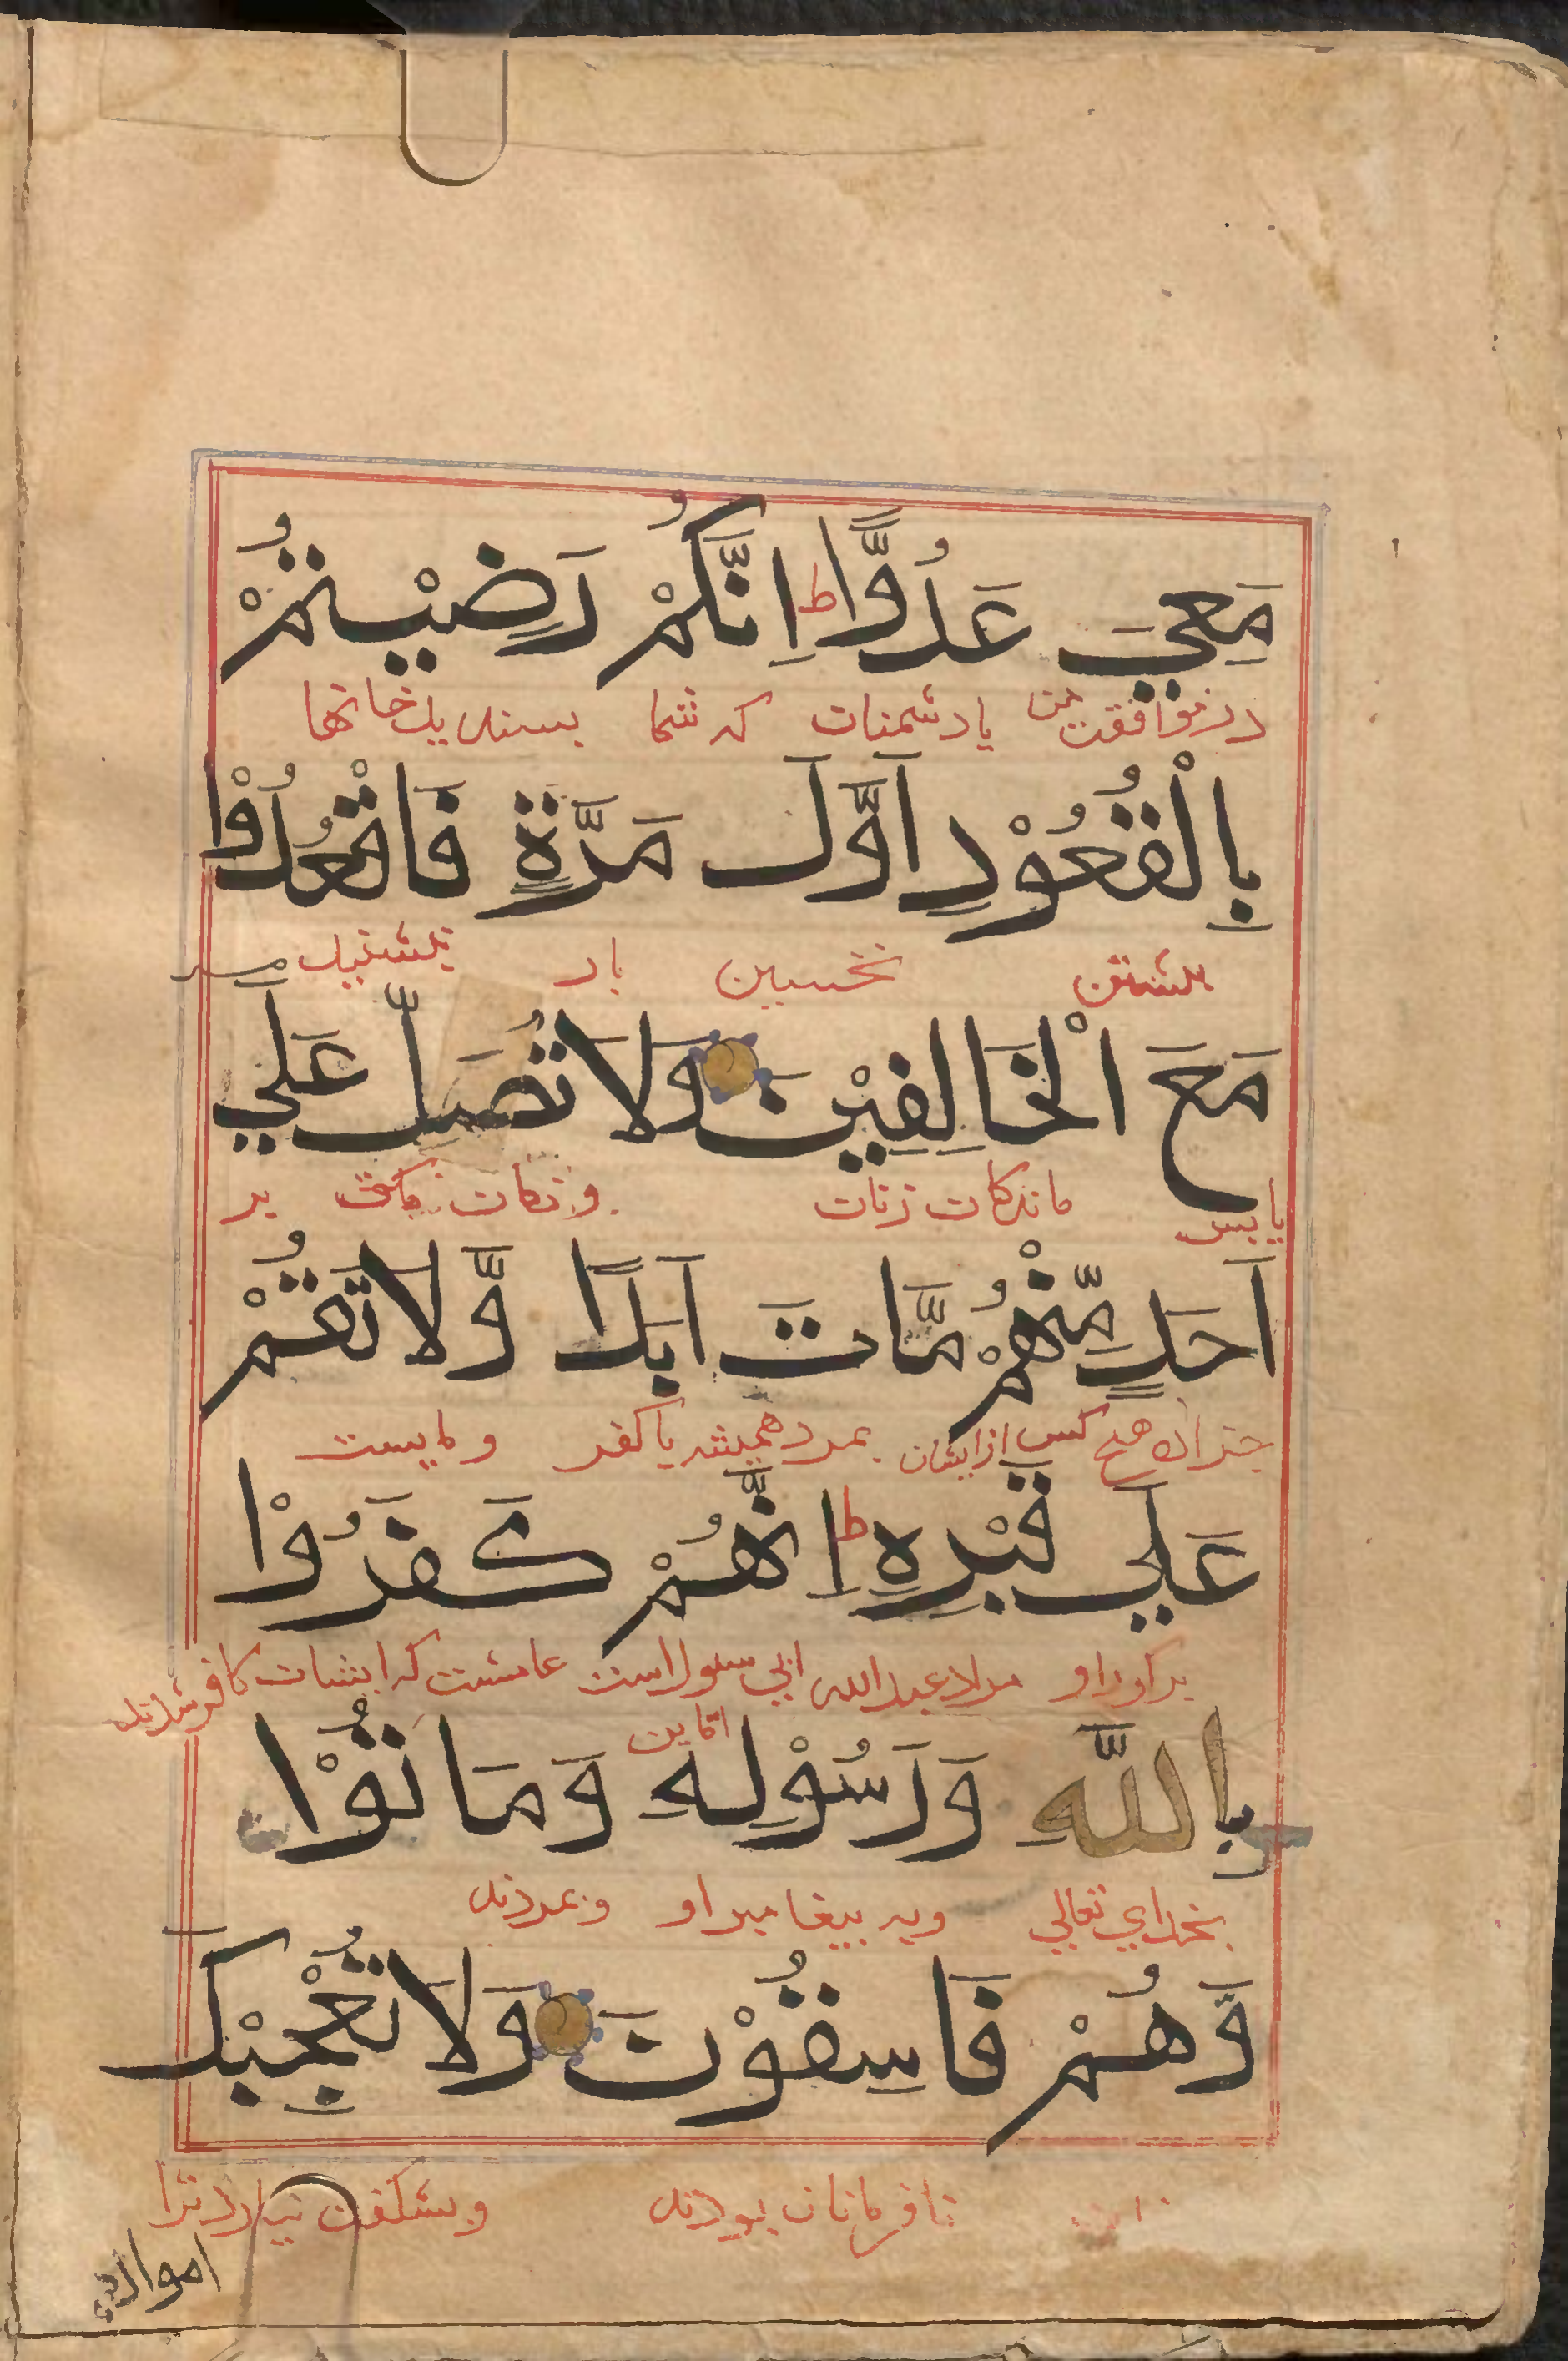 مَعِيَ عَدُوًّا ط اِنَّكُمْ رَضِيْتُمْ
در موافقت من با دشمنان که شما بسندیدیت خانها
بِالْقُعُوْدِ اَوَّلَ مَرَّةٍ فَاقْعُدُوْا
بنشستن نخستین بار بنشینید
مَعَ الْخَالِفِيْنَ وَلَا تُصَلِّ عَلَي
با پس ماندکان زنان و نماز مکن بر
اَحَدٍ مِّنْهُمْ مَّاتَ اَبَدًا وَّلَا تَقُمْ
هیچ کس از ایشان بمرد همیشه با کفر و مایست
عَلَي قَبْرِهٖ ط اِنَّهُمْ كَفَرُوْا
بر کور او مراد عبد الله ابي سلول است که ایشان کافر شدند
بِاللَّهِ وَرَسُوْلِهٖ وَمَاتُوْا
بخدای تعالي وبه بیغامبر او و بمردند
وَّهُمْ فَاسِقُوْنَ وَلَا تُعْجِبْكَ
نافرمانان بودند و بشکفت نیارد ترا
اموالهم